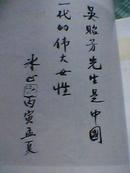 吴贻芳先生是中國
一代的伟大女性
冰心 丙寅孟夏